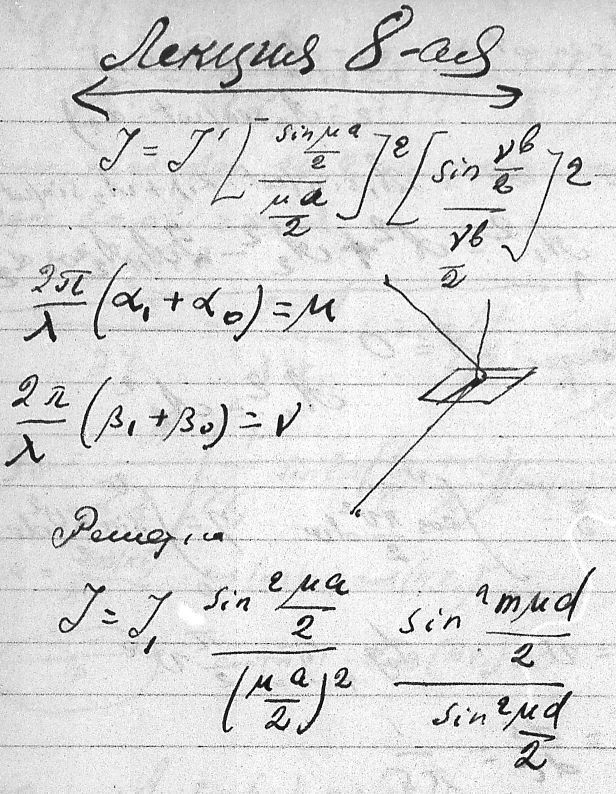 Лекция 8-ая
J = J' [sin μa/2 / μa/2]² [sin νb/2 / νb/2]²
2π/λ (α₁ + α₀) = μ
2π/λ (β₁ + β₀) = ν
Решетка
J = J₁ sin² μa/2 / (μa/2)² sin² mμd/2 / sin² μd/2